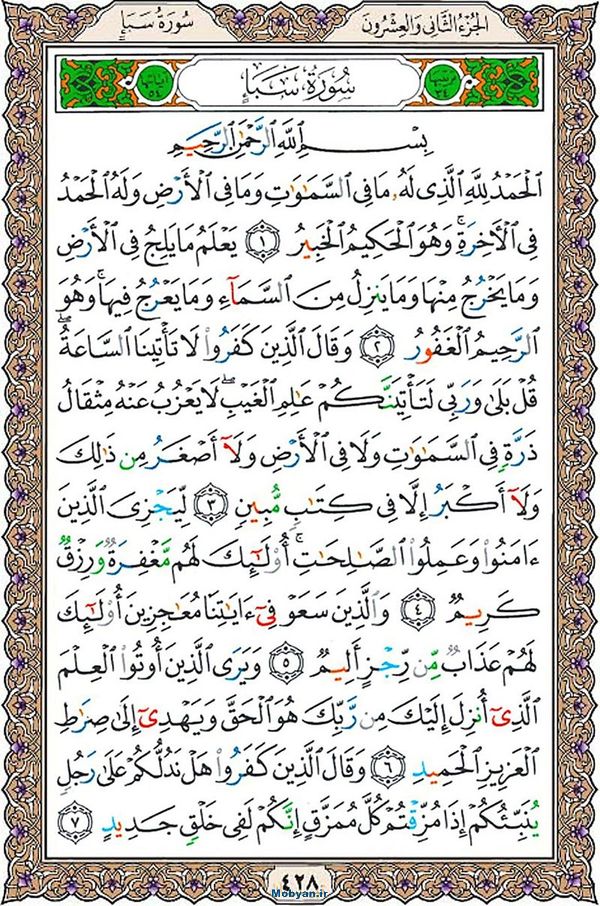 الجُزْءُ الثَّانِي وَالعِشْرُونَ
سُورَةُ سَبَإٍ
تَرْتِيبُهَا ٣٤
سُورَةُ سَبَإٍ
آيَاتُهَا ٥٤
بِسْمِ ٱللَّهِ ٱلرَّحْمَٰنِ ٱلرَّحِيمِ
ٱلْحَمْدُ لِلَّهِ ٱلَّذِى لَهُۥ مَا فِى ٱلسَّمَٰوَٰتِ وَمَا فِى ٱلْأَرْضِ وَلَهُ ٱلْحَمْدُ
فِى ٱلْأَخِرَةِ ۚ وَهُوَ ٱلْحَكِيمُ ٱلْخَبِيرُ ١ يَعْلَمُ مَا يَلِجُ فِى ٱلْأَرْضِ
وَمَا يَخْرُجُ مِنْهَا وَمَا يَنزِلُ مِنَ ٱلسَّمَآءِ وَمَا يَعْرُجُ فِيهَا ۚ وَهُوَ
ٱلرَّحِيمُ ٱلْغَفُورُ ٢ وَقَالَ ٱلَّذِينَ كَفَرُوا۟ لَا تَأْتِينَا ٱلسَّاعَةُ ۖ
قُلْ بَلَىٰ وَرَبِّى لَتَأْتِيَنَّكُمْ عَٰلِمِ ٱلْغَيْبِ ۖ لَا يَعْزُبُ عَنْهُ مِثْقَالُ
ذَرَّةٍ فِى ٱلسَّمَٰوَٰتِ وَلَا فِى ٱلْأَرْضِ وَلَآ أَصْغَرُ مِن ذَٰلِكَ
وَلَآ أَكْبَرُ إِلَّا فِى كِتَٰبٍ مُّبِينٍ ٣ لِّيَجْزِىَ ٱلَّذِينَ
ءَامَنُوا۟ وَعَمِلُوا۟ ٱلصَّٰلِحَٰتِ ۚ أُو۟لَٰٓئِكَ لَهُم مَّغْفِرَةٌ وَرِزْقٌ
كَرِيمٌ ٤ وَٱلَّذِينَ سَعَوْ فِىٓ ءَايَٰتِنَا مُعَٰجِزِينَ أُو۟لَٰٓئِكَ
لَهُمْ عَذَابٌ مِّن رِّجْزٍ أَلِيمٌ ٥ وَيَرَى ٱلَّذِينَ أُوتُوا۟ ٱلْعِلْمَ
ٱلَّذِىٓ أُنزِلَ إِلَيْكَ مِن رَّبِّكَ هُوَ ٱلْحَقَّ وَيَهْدِىٓ إِلَىٰ صِرَٰطِ
ٱلْعَزِيزِ ٱلْحَمِيدِ ٦ وَقَالَ ٱلَّذِينَ كَفَرُوا۟ هَلْ نَدُلُّكُمْ عَلَىٰ رَجُلٍ
يُنَبِّئُكُمْ إِذَا مُزِّقْتُمْ كُلَّ مُمَزَّقٍ إِنَّكُمْ لَفِى خَلْقٍ جَدِيدٍ ٧
٤٢٨
Mobyan.ir